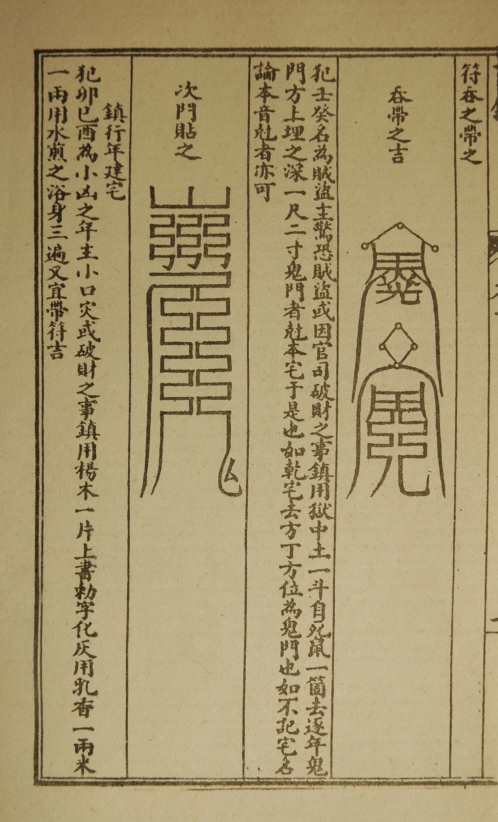 符吞之帶之
吞帶之吉
犯壬癸名為賊盜主驚恐賊盜或因官司破財之事鎮用獄中土一斗自死鼠一箇去逐年鬼
門方上埋之深一尺二寸鬼門者尅本宅于是也如乾宅去方丁方位為鬼門也如不記宅名
論本音尅者亦可
次門貼之
鎮行年建宅
犯卯巳酉為小凶之年主小口災或破財之事鎮用楊木一片上書勅字化灰用乳香一兩米
一兩用水煎之浴身三遍又宜帶符吉